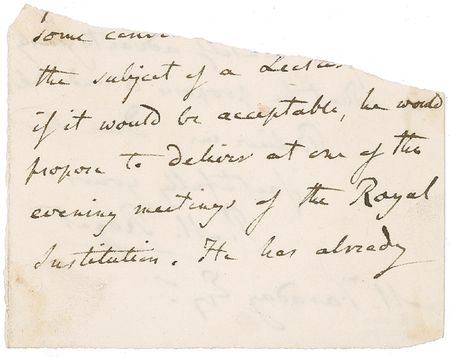 Some
the subject of a Lecture
if it would be acceptable, he would
propose to deliver at one of the
evening meetings of the Royal
Institution. He has already